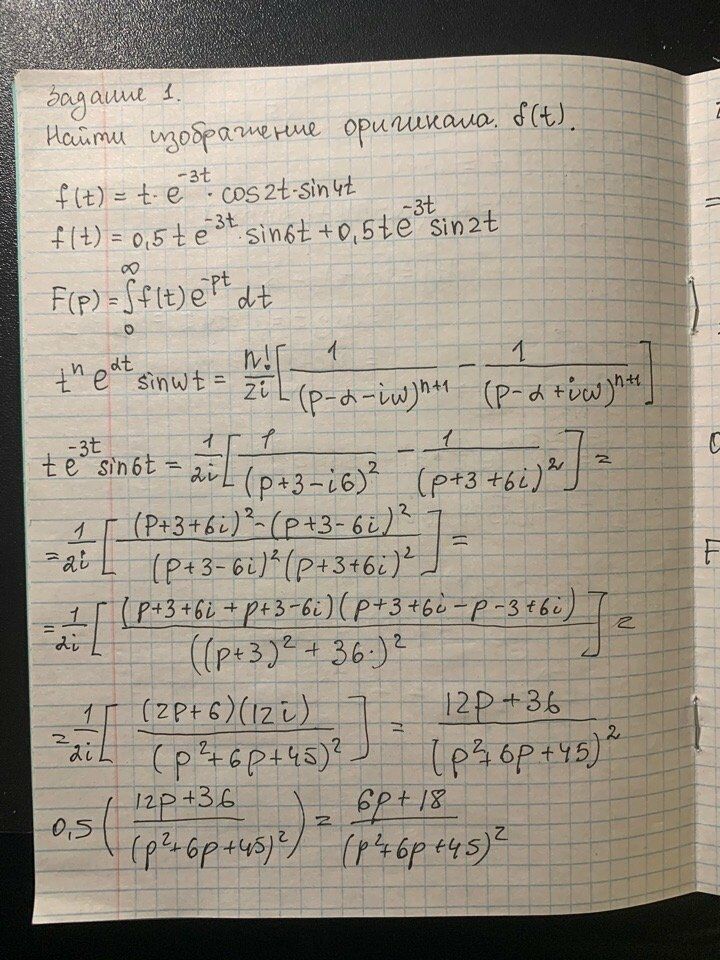 Задание 1.
Найти изображение оригинала. f(t).
f(t) = t · e^{-3t} · cos2t · sin4t
f(t) = 0,5 t e^{-3t} · sin6t + 0,5 t e^{-3t} sin2t
F(p) = ∫_0^∞ f(t) e^{-pt} dt
t^n e^{αt} sinωt = n!/2i [ 1/(p-α-iω)^{n+1} - 1/(p-α+iω)^{n+1} ]
t e^{-3t} sin6t = 1/2i [ 1/(p+3-i6)^2 - 1/(p+3+6i)^2 ] =
= 1/2i [ ((p+3+6i)^2 - (p+3-6i)^2)/((p+3-6i)^2 (p+3+6i)^2) ] =
= 1/2i [ (p+3+6i+p+3-6i)(p+3+6i-p-3+6i)/((p+3)^2+36·)^2 ] =
= 1/2i [ (2p+6)(12i)/(p^2+6p+45)^2 ] = (12p+36)/(p^2+6p+45)^2
0,5 ( (12p+36)/(p^2+6p+45)^2) ) = (6p+18)/(p^2+6p+45)^2